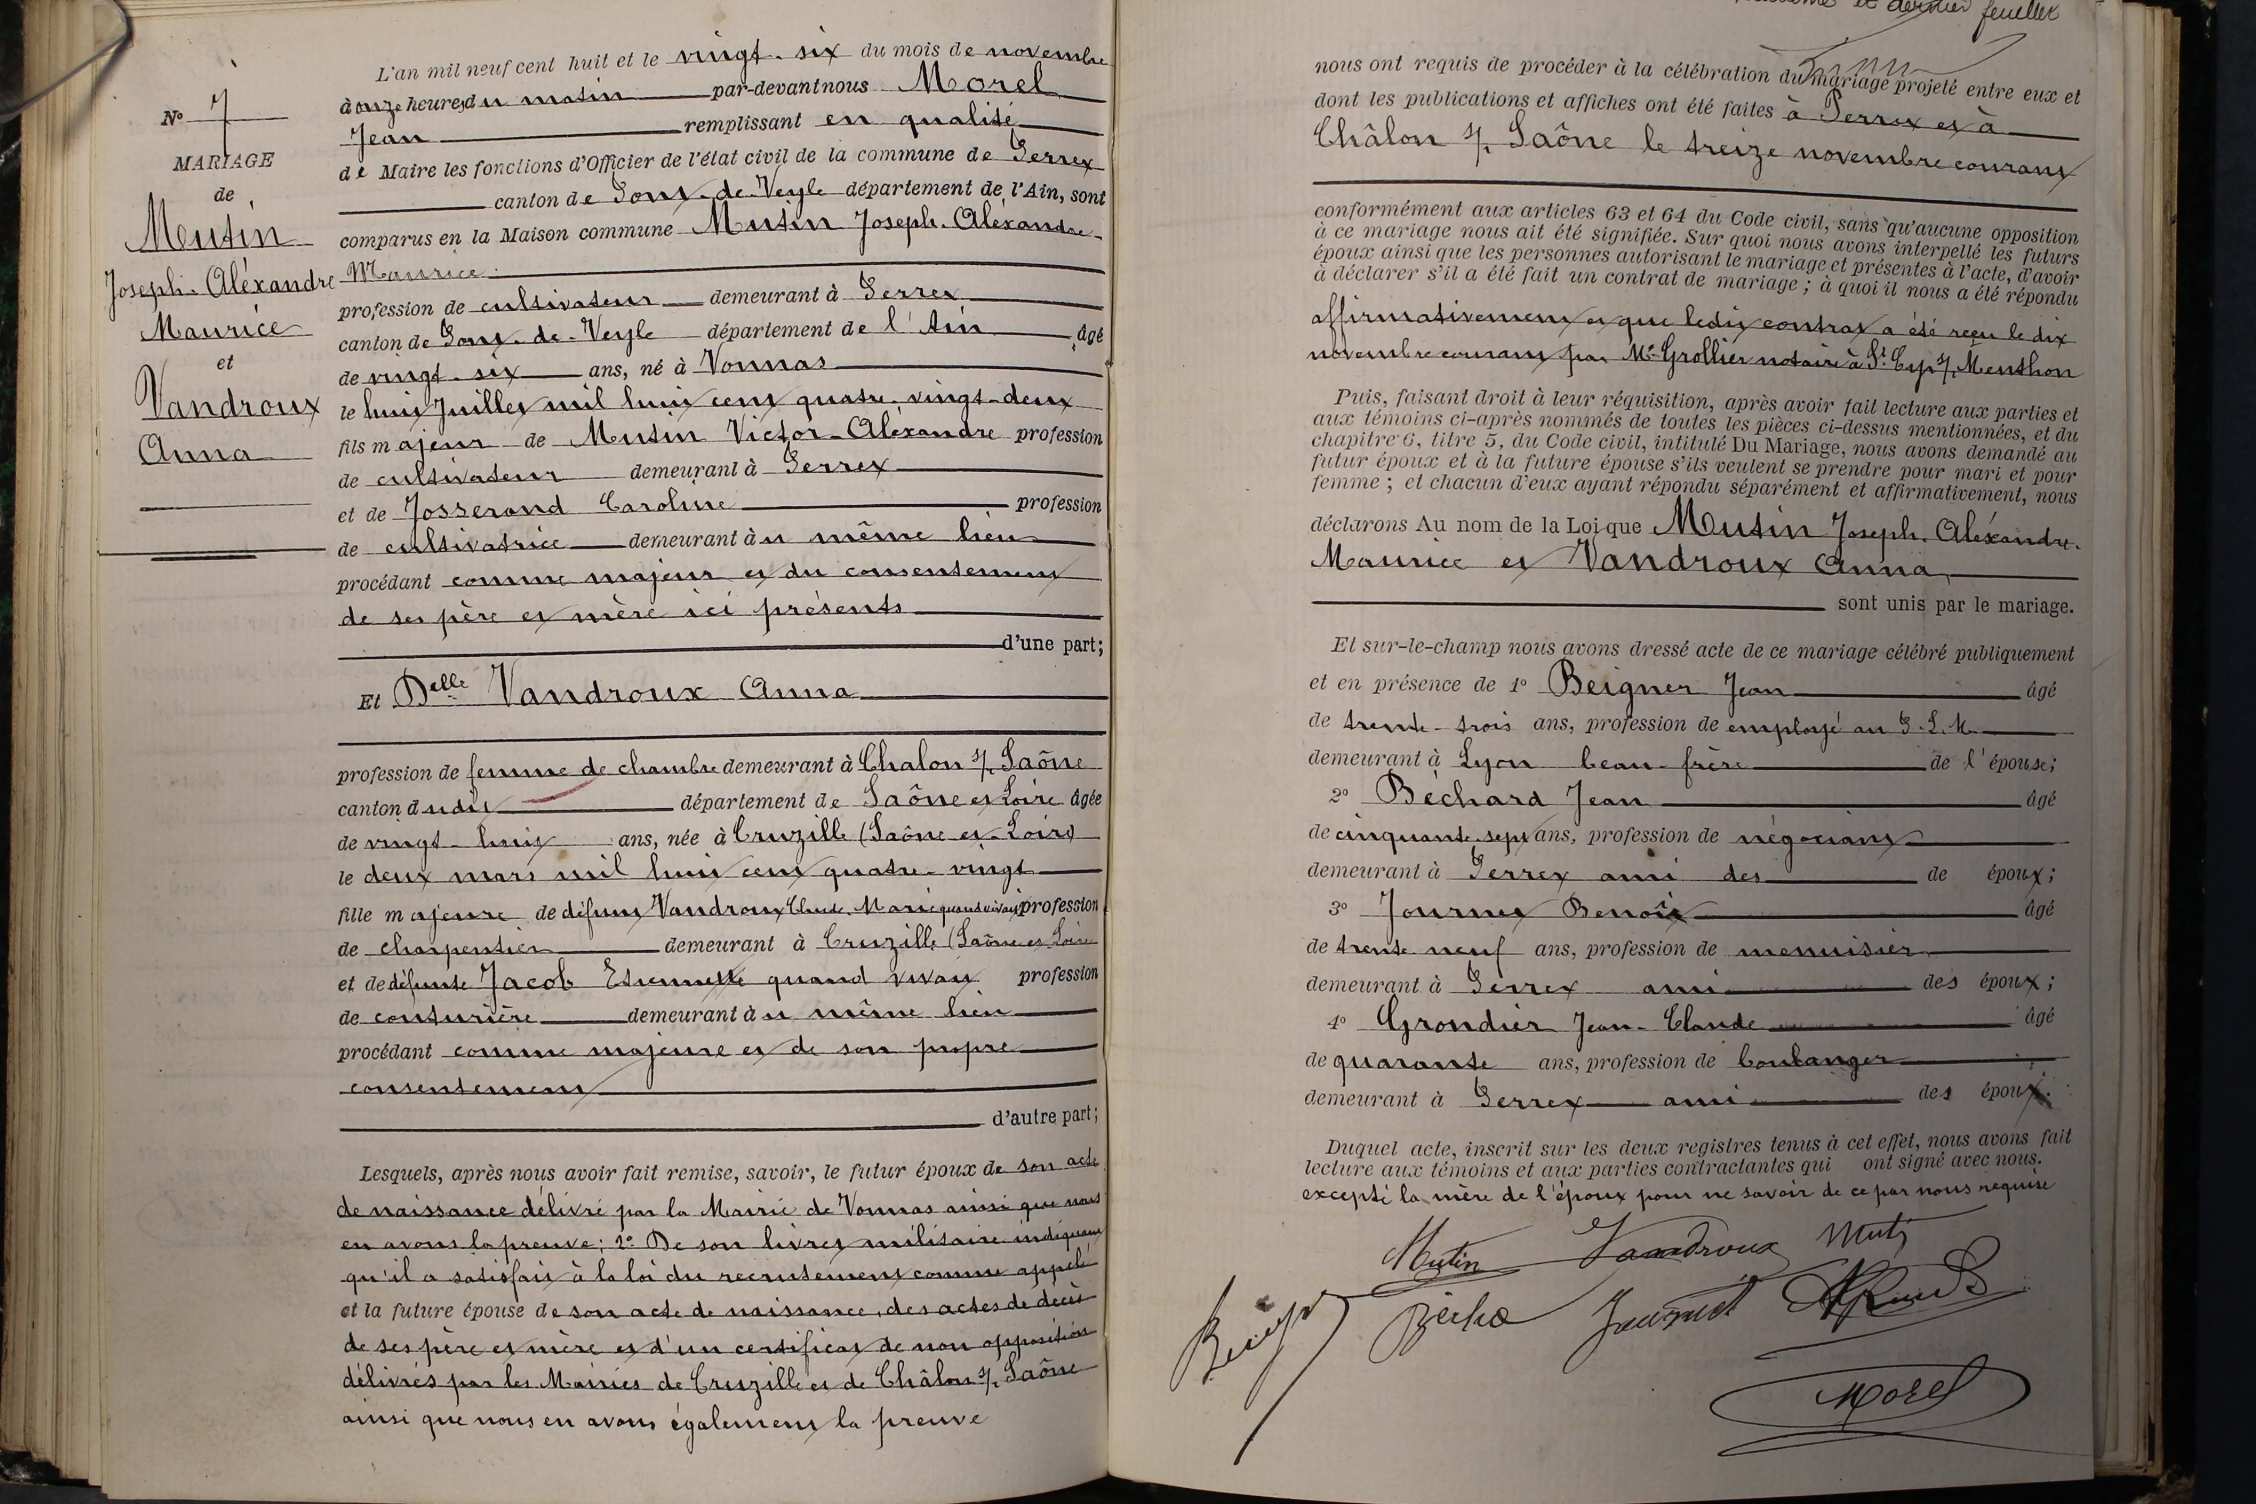 N° 7
MARIAGE
de
Mutin
Joseph-Aléxandre
Maurice
et
Vandroux
Anna
L'an mil neuf cent huit et le vingt-six du mois de novembre
à onze heures du matin par-devant nous Morel
Jean remplissant en qualité
de Maire les fonctions d'Officier de l'état civil de la commune de Perrex
canton de Pont-de-Veyle département de l'Ain, sont
comparus en la Maison commune Mutin Joseph-Aléxandre-
Maurice
profession de cultivateur demeurant à Perrex
canton de Pont-de-Veyle département de l'Ain âgé
de vingt-six ans, né à Vonnas
le huit Juillet mil huit cent quatre-vingt-deux
fils majeur de Mutin Victor-Aléxandre profession
de cultivateur demeurant à Perrex
et de Josserand Caroline profession
de cultivatrice demeurant au même lieu
procédant comme majeur et du consentement
de ses père et mère ici présents
d'une part;
Et Delle Vandroux Anna
profession de femme de chambre demeurant à Chalon s/ Saône
canton dudit département de Saône et Loire âgée
de vingt-huit ans, née à Cruzille (Saône-et-Loire)
le deux mars mil huit cent quatre-vingt
fille majeure de défunt Vandroux Claude-Marie quand vivait profession
de charpentier demeurant à Cruzille (Saône et Loire
et de défunte Jacob Etiennette quand vivait profession
de couturière demeurant au même lieu
procédant comme majeure et de son propre
consentement
d'autre part;
Lesquels, après nous avoir fait remise, savoir, le futur époux de son acte
de naissance délivré par la Mairie de Vonnas ainsi que nous
en avons la preuve; 2° De son livret militaire indiquant
qu'il a satisfait à la loi du recrutement comme appelé
et la future épouse de son acte de naissance, des actes de décès
de ses père et mère et d'un certificat de non opposition
délivrés par les Mairies de Cruzille et de Châlon s/ Saône
ainsi que nous en avons également la preuve
et dernier feuillet
nous ont requis de procéder à la célébration du mariage projeté entre eux et
dont les publications et affiches ont été faites à Perrex et à
Châlon s/ Saône le treize novembre courant
conformément aux articles 63 et 64 du Code civil, sans qu'aucune opposition
à ce mariage nous ait été signifiée. Sur quoi nous avons interpellé les futurs
époux ainsi que les personnes autorisant le mariage et présentes à l'acte, d'avoir
à déclarer s'il a été fait un contrat de mariage; à quoi il nous a été répondu
affirmativement et que ledit contrat a été reçu le dix
novembre courant par Me Grollier notaire à St. Cyr s/ Menthon
Puis, faisant droit à leur réquisition, après avoir fait lecture aux parties et
aux témoins ci-après nommés de toutes les pièces ci-dessus mentionnées, et du
chapitre 6, titre 5, du Code civil, intitulé Du Mariage, nous avons demandé au
futur époux et à la future épouse s'ils veulent se prendre pour mari et pour
femme; et chacun d'eux ayant répondu séparément et affirmativement, nous
déclarons Au nom de la Loi que Mutin Joseph-Aléxandre-
Maurice et Vandroux Anna
sont unis par le mariage.
Et sur-le-champ nous avons dressé acte de ce mariage célébré publiquement
et en présence de 1° Beigner Jean âgé
de trente-trois ans, profession de employé au P.L.M.
demeurant à Lyon beau-frère de l'épouse;
2° Béchard Jean âgé
de cinquante-sept ans, profession de négociant
demeurant à Perrex ami des de époux;
3° Journet Benoît âgé
de trente neuf ans, profession de menuisier
demeurant à Perrex ami des époux;
4° Grondier Jean-Claude âgé
de quarante ans, profession de boulanger
demeurant à Perrex ami des époux.
Duquel acte, inscrit sur les deux registres tenus à cet effet, nous avons fait
lecture aux témoins et aux parties contractantes qui ont signé avec nous.
excepté la mère de l'époux pour ne savoir de ce par nous requise
Mutin Vandroux Mutin
Journet
Morel